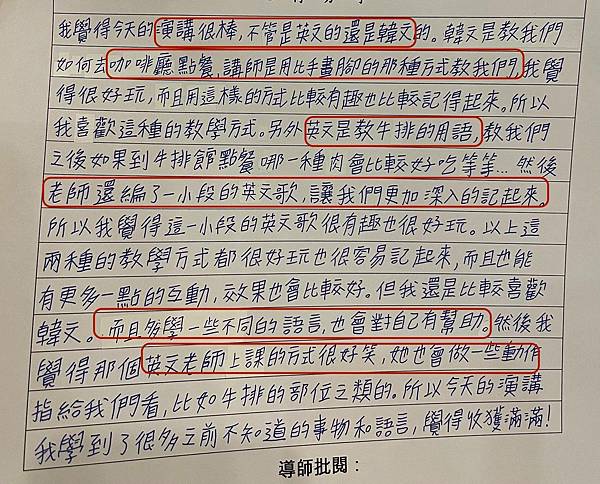 我覺得今天的演講很棒,不管是英文的還是韓文的。韓文是教我們
如何去咖啡廳點餐,講師是用比手畫腳的那種方式教我們,我覺
得很好玩,而且用這樣的方式比較有趣也比較記得起來。所以
我喜歡這種的教學方式。另外英文是教牛排的用語,教我們
之後如果到牛排館點餐哪一種肉會比較好吃等等…然後
老師還編了一小段的英文歌,讓我們更加深入的記起來。
所以我覺得這一小段的英文歌很有趣也很好玩。以上這
兩種的教學方式都很好玩也很容易記起來,而且也能
有更多一點的互動,效果也會比較好。但我還是比較喜歡
韓文。而且多學一些不同的語言,也會對自己有幫助。然後我
覺得那個英文老師上課的方式很好笑,她也會做一些動作
指給我們看,比如牛排的部位之類的。所以今天的演講
我學到了很多之前不知道的事物和語言,覺得收獲滿滿!
導師批閱: